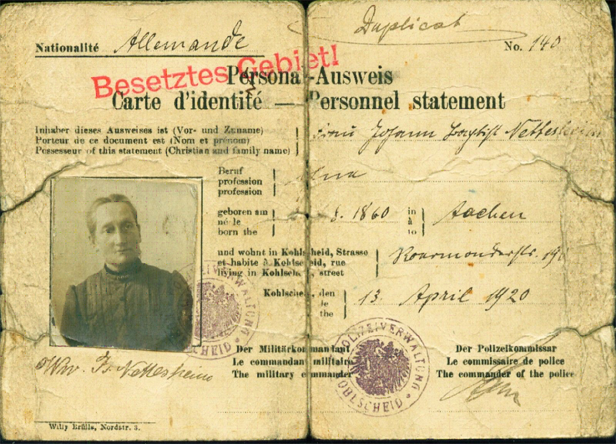 Duplicat
Nationalité Allemande
No. 140
Besetztes Gebiet!
Personal-Ausweis
Carte d'identité — Personnel statement
Inhaber dieses Ausweises ist (Vor- und Zuname)
Porteur de ce document est (Nom et prénom)
Possesseur of this statement (Christian and family name)
Frau Johann Baptist Nettesheim
Beruf
profession
profession
geboren am
né le
born the
1860
in
à
to
Aachen
und wohnt in Kohlscheid, Strasse
et habite à Kohlscheid, rue
living in Kohlscheid, street
Roermonderstr.
Kohlscheid, den
le
the
13. April 1920
Der Militärkommandant
Le commandant militaire
The military commander
Der Polizeikommissar
Le commissaire de police
The commander of the police
POLIZEIVERWALTUNG
KOHLSCHEID
Wwv. Nettesheim
Willy Brülls, Nordstr. 3.